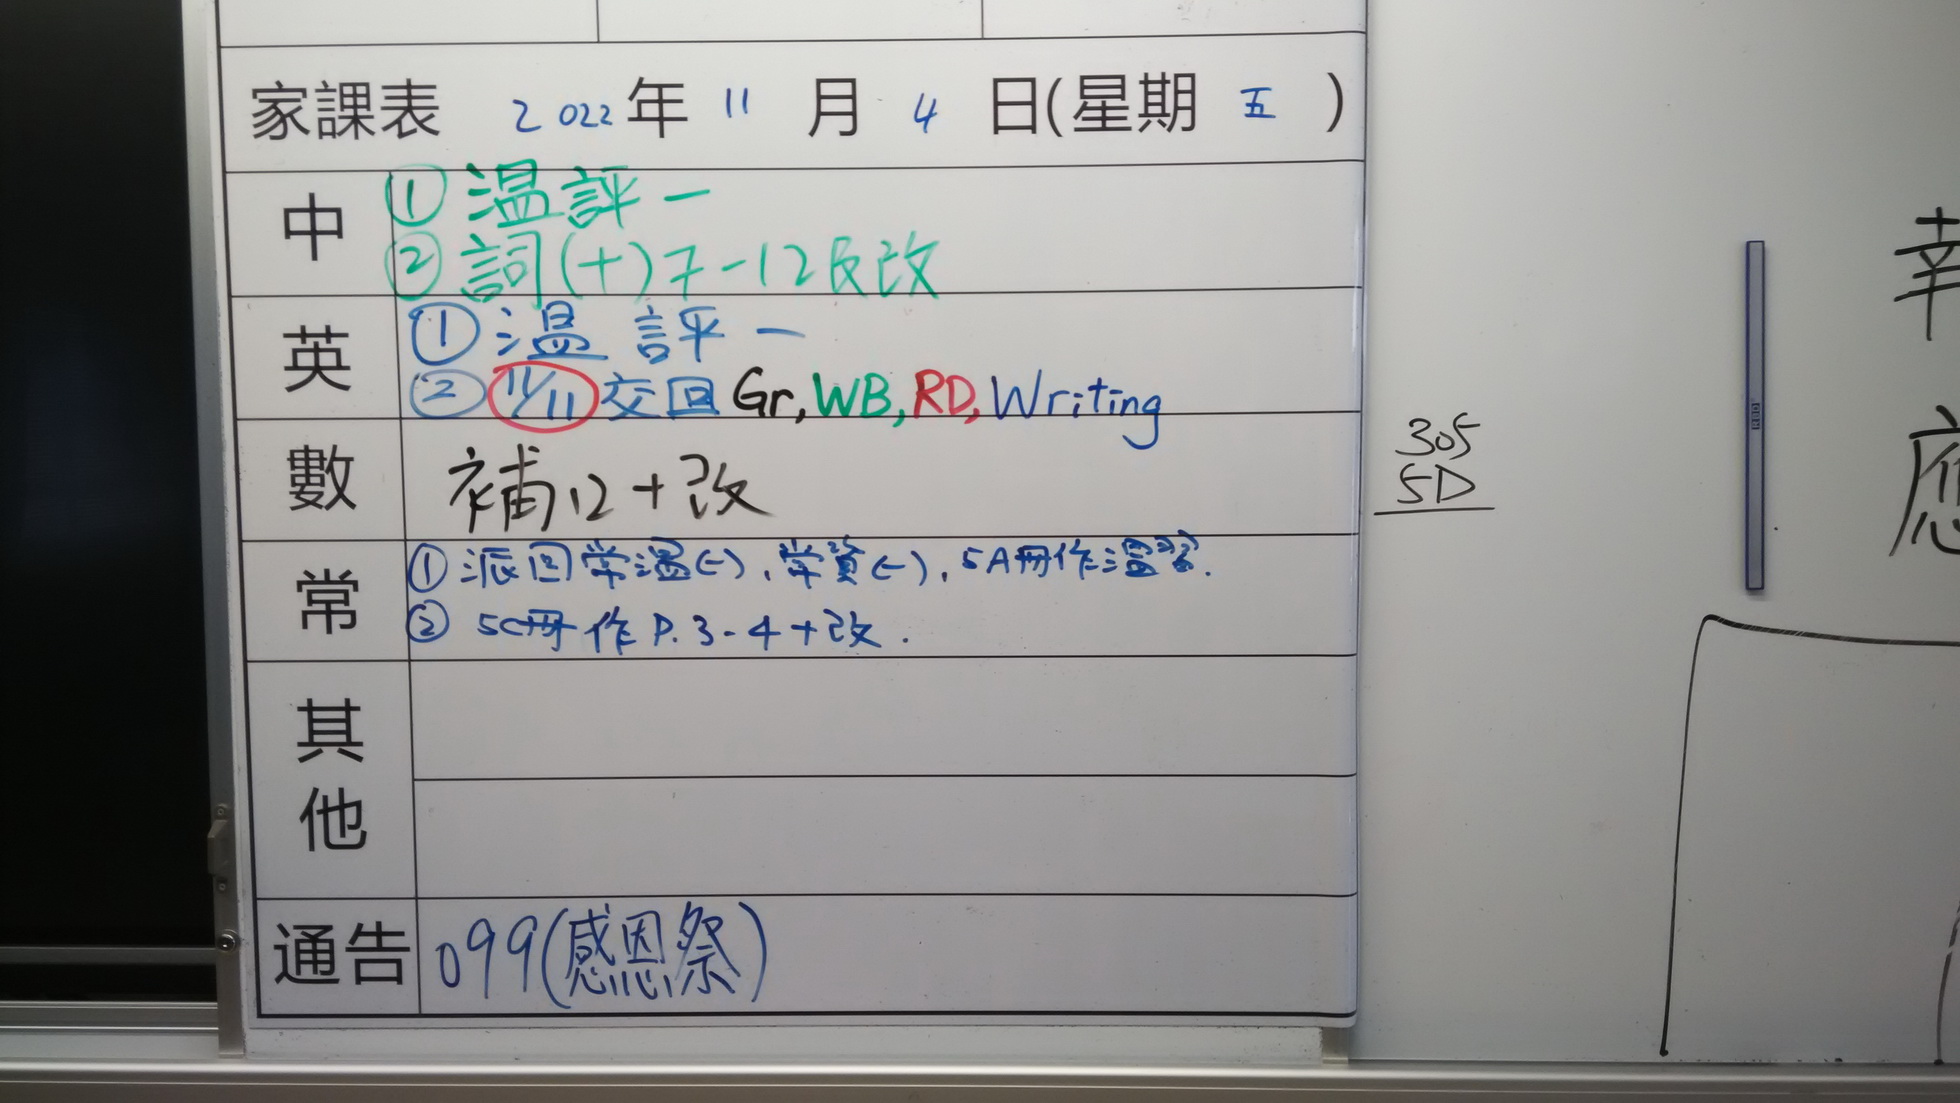 家課表 2022年 11 月 4 日(星期 五 )
中
① 温評一
② 詞(十)7-12及改
英
① 温 評 一
② 11/11 交回 Gr, WB, RD, Writing
數
補12+改
常
① 派回常温(一), 常資(一), 5A冊作温習.
② 5C冊作 P.3-4+改.
其他
通告
099(感恩祭)
305
5D
幸
應